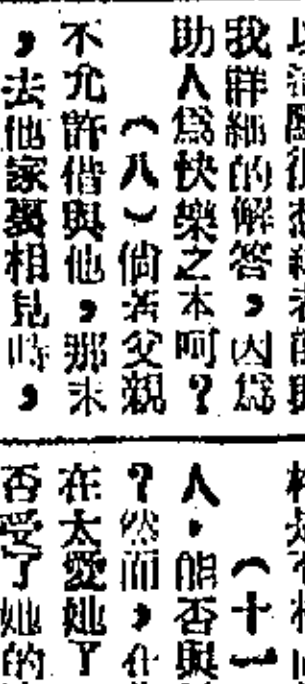 我詳細的解答，因爲
助人爲快樂之本呵？
（八）倘若父親
不允許借與他，那末
，去他家裏相見時，
（十一
人，能否與
？然而，
在太愛她了
否受了她的